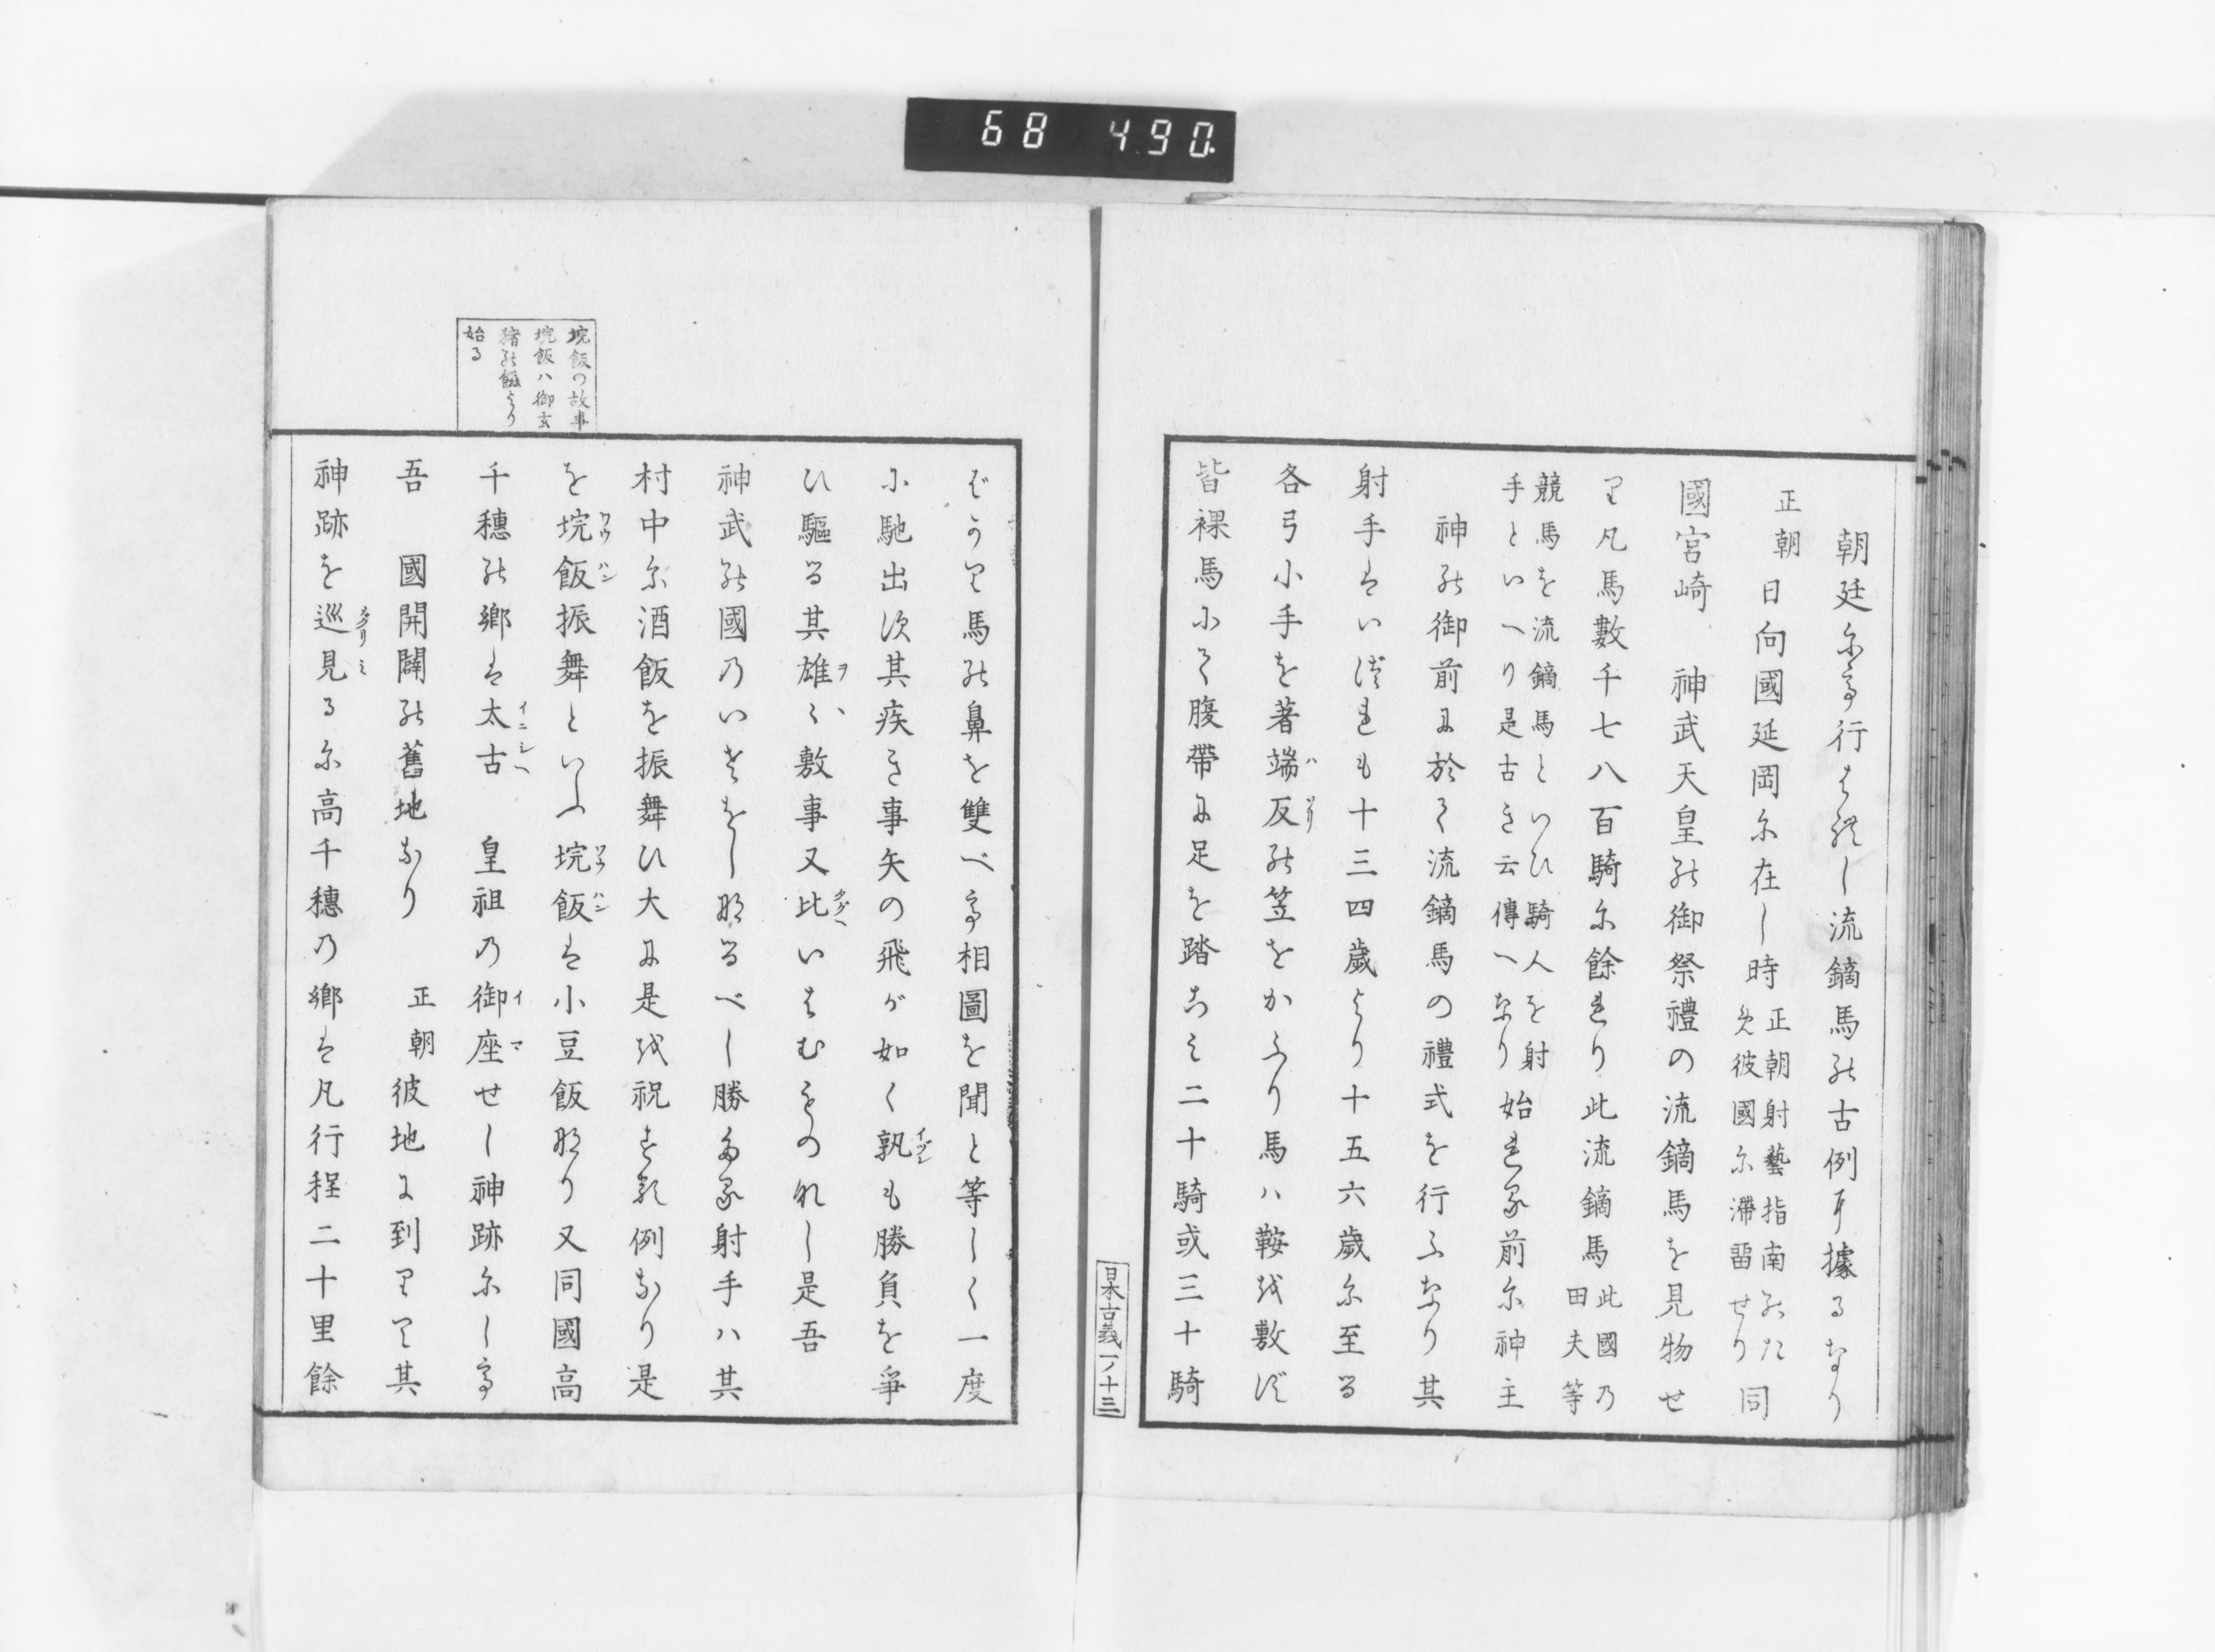 68 490.
朝廷尓亭行はれし流鏑馬能古例耳據るなり
正朝日向國延岡尓在し時正朝射藝指南のため彼國尓滯畱せり同
國宮崎　神武天皇能御祭禮の流鏑馬を見物せ
り凡馬數千七八百騎尓餘れり此流鏑馬此國乃田夫等
競馬を流鏑馬といひ騎人を射手といへり是古き云傳へなり始れる前尓神主
神能御前に於て流鏑馬の禮式を行ふなり其
射手はいづれも十三四歲より十五六歲尓至る
各弓小手を著端反能笠をかふり馬ハ鞍を敷ず
皆裸馬にて腹帶に足を踏こミ二十騎或三十騎
日本古義一ノ十三
ばかり馬能鼻を雙べ亭相圖を聞と等しく一度
に馳出須其疾き事矢の飛が如く孰も勝負を爭
ひ驅る其雄々敷事又比いはむものなし是吾
神武能國乃いさをし那るべし勝たる射手ハ其
村中尓酒飯を振舞ひ大に是を祝する例なり是
を埦飯振舞といふ埦飯は小豆飯那り又同國高
千穗能鄉は太古　皇祖の御座せし神跡尓し亭
吾　國開闢能舊地なり　正朝彼地に到りて其
神跡を巡見る尓高千穗乃鄉は凡行程二十里餘
埦飯の故事
埦飯ハ御玄
猪能餉より
始る